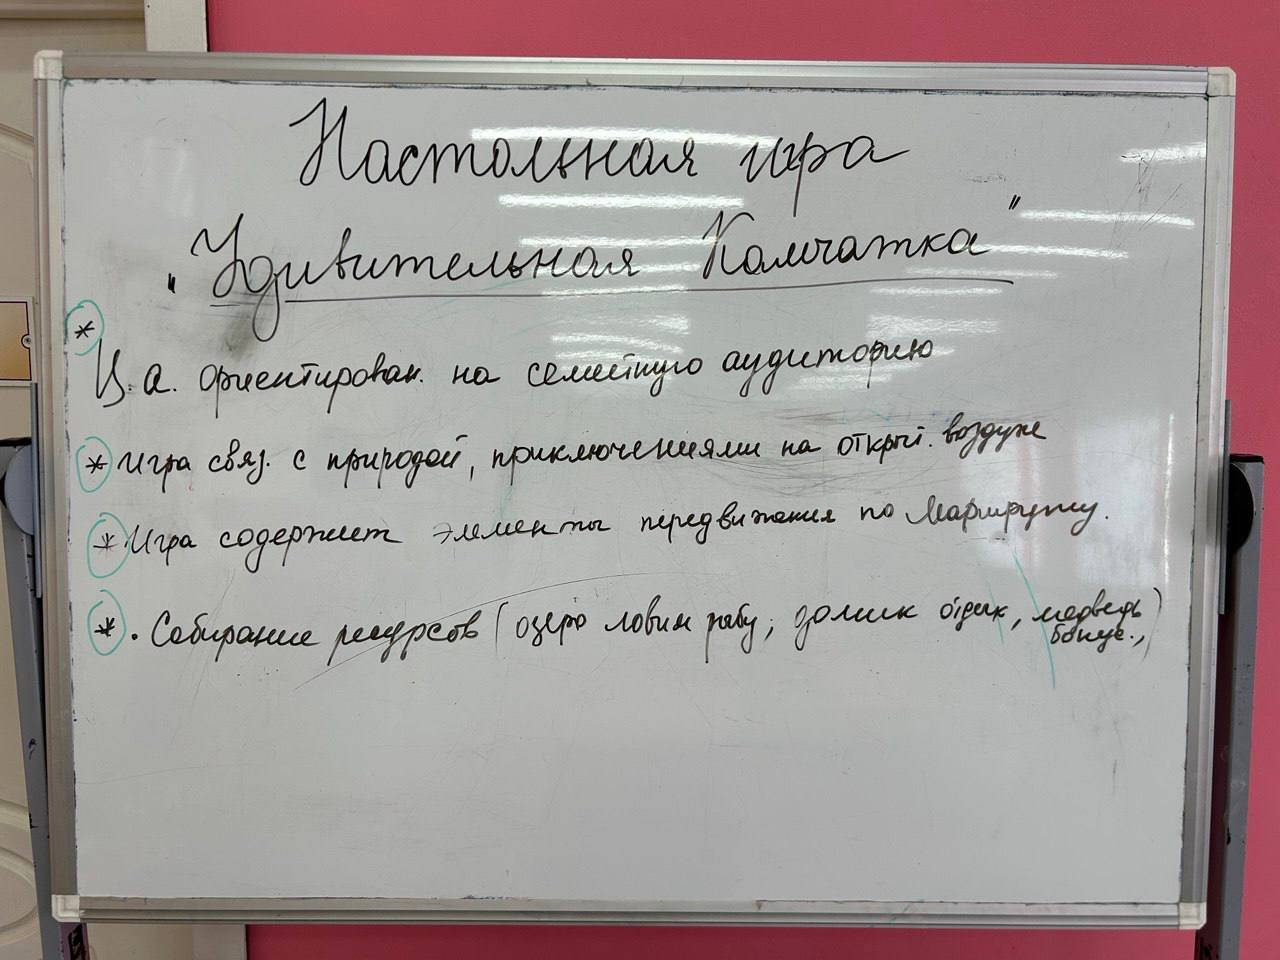 Настольная игра
"Удивительная Камчатка"
* Ц. а. ориентирован. на семейную аудиторию
* Игра связ. с природой, приключениями на открыт. воздухе
* Игра содержит элементы передвижения по маршруту.
* . Собирание ресурсов (озеро ловим рыбу, домик отдых, медведь
бонус.,)